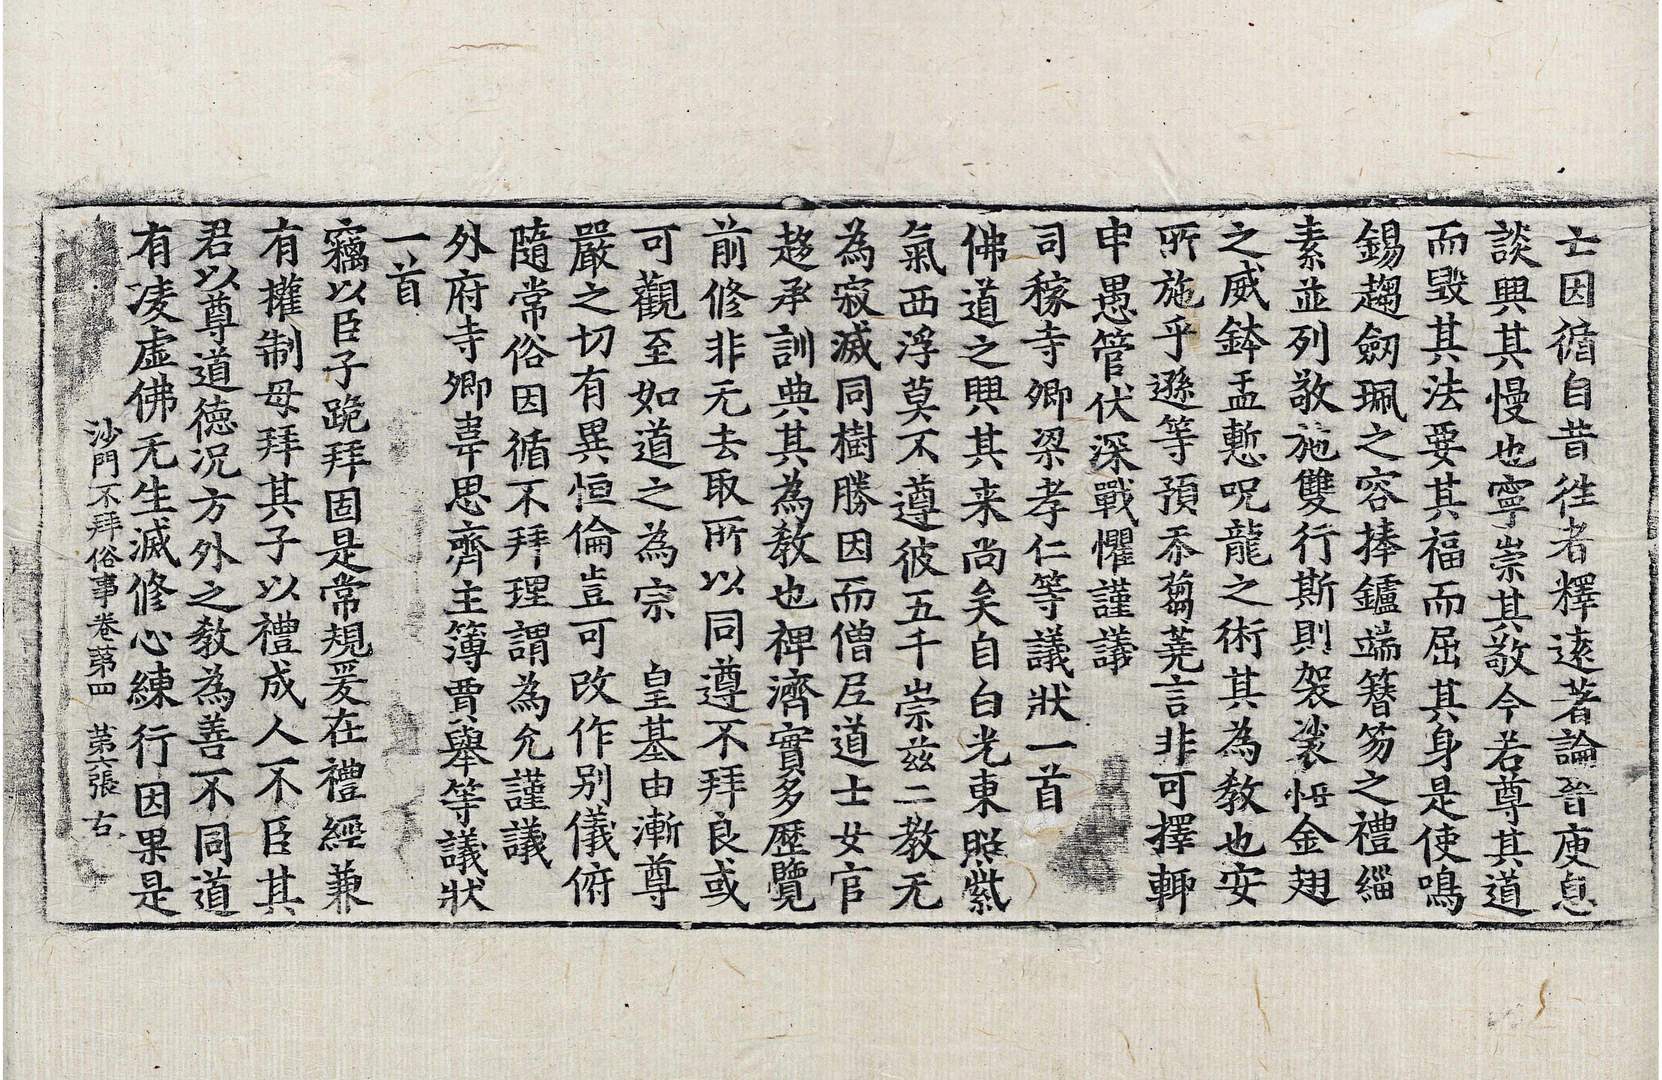 亡因循自昔往者釋遠著論晉庾息
談興其慢也寧崇其敬今若尊其道
而毀其法要其福而屈其身是使鳴
錫趨劒珮之容捧鑪端簪笏之禮緇
素並列敬施雙行斯則袈裟恡金翅
之威鉢盂慙呪龍之術其為教也安
所施乎遜等預忝蒭蕘言非可擇輒
申愚管伏深戰懼謹議
司稼寺卿梁孝仁等議狀一首
佛道之興其来尚矣自白光東照紫
氣西浮莫不遵彼五千崇茲二教无
為寂滅同樹勝因而僧尼道士女官
趍承訓典其為教也裨濟實多歷覽
前修非无去取所以同遵不拜良或
可觀至如道之為宗　皇基由漸尊
嚴之切有異恒倫豈可改作別儀俯
隨常俗因循不拜理謂為允謹議
外府寺卿韋思齊主簿賈舉等議狀
一首
竊以臣子跪拜固是常規爰在禮經兼
有權制母拜其子以禮成人不臣其
君以尊道德况方外之教為善不同道
有凌虛佛无生滅修心練行因果是
沙門不拜俗事卷第四　第六張　右